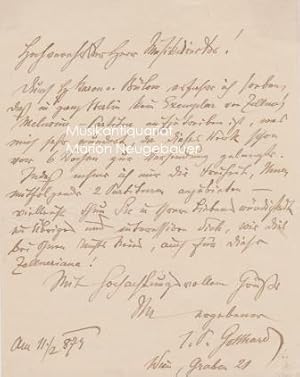 Hochverehrtester Herr Musikdirector!
Durch Hr Baron v. Bülow erfahre ich soeben,
daß in ganz Berlin kein Exemplar von Zellner's
Melusina - Partitur aufzutreiben ist, was
mich sehr dieses Werk schon
vor 6 Wochen zur Versendung gelangte.
Indeß nehme ich mir die Freiheit, Ihnen
mitfolgende 2 Partituren anzubieten -
vielleicht Sie in Ihrer Liebenswürdigkeit
und interessiren Sich, wie Sie
bei Ihnen auch für diese
Zellneriana!
Mit hochachtungsvollem Gruße
Ihr ergebener
J. P. Gotthard
Am 11/2 879
Wien, Graben 21
Musikantiquariat
Marion Neugebauer